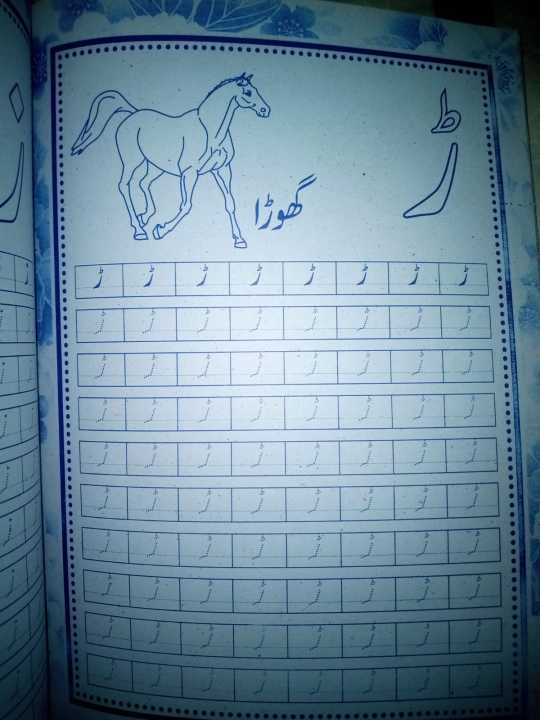 ڑ
گھوڑا
ڑ ڑ ڑ ڑ ڑ ڑ ڑ ڑ
ڑ ڑ ڑ ڑ ڑ ڑ ڑ ڑ
ڑ ڑ ڑ ڑ ڑ ڑ ڑ ڑ
ڑ ڑ ڑ ڑ ڑ ڑ ڑ ڑ
ڑ ڑ ڑ ڑ ڑ ڑ ڑ ڑ
ڑ ڑ ڑ ڑ ڑ ڑ ڑ ڑ
ڑ ڑ ڑ ڑ ڑ ڑ ڑ ڑ
ڑ ڑ ڑ ڑ ڑ ڑ ڑ ڑ
ڑ ڑ ڑ ڑ ڑ ڑ ڑ ڑ
ڑ ڑ ڑ ڑ ڑ ڑ ڑ ڑ